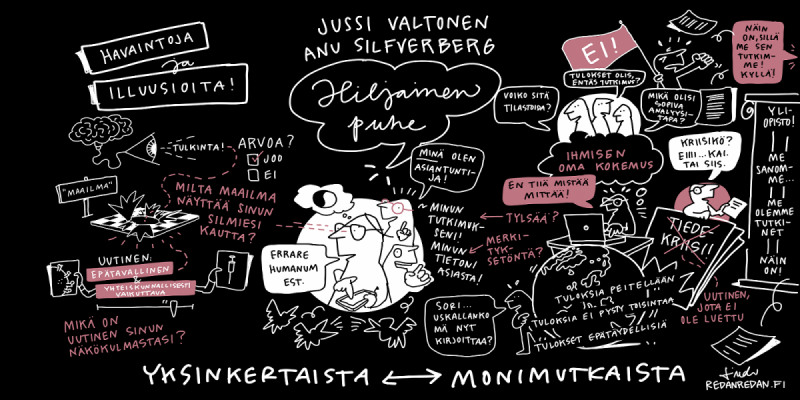 HAVAINTOJA
ja
ILLUUSIOITA!
JUSSI VALTONEN
ANU SILFVERBERG
Hiljainen
puhe
TULKINTA!
ARVOA?
JOO
EI
"MAAILMA"
MILTA MAAILMA
NÄYTTÄÄ SINUN
SILMIESI
KAUTTA?
UUTINEN:
EPÄTAVALLINEN
YHTEISKUNNALLISESTI
VAIKUTTAVA
MIKÄ ON
UUTINEN SINUN
NÄKÖKULMASTASI?
ERRARE
HUMANUM
EST.
MINÄ OLEN
ASIANTUNTI-
JA!
MINUN
TUTKIMUK-
SENI!
MINUN
TIETONI
ASIASTA!
TYLSÄÄ?
MERKI-
TYK-
SETÖNTÄ?
SORI...
USKALLANKO
MÄ NYT
KIRJOITTAA?
EI!
TULOKSET OLIS,
ENTÄS TUTKIMUS?
VOIKO SITÄ
TILASTOIDA?
MIKÄ OLISI
SOPIVA
ANALYYSI-
TAPA?
IHMISEN
OMA KOKEMUS
EN TIIÄ MISTÄÄ
MITTÄÄ!
TULOKSIA PEITELLÄÄN
TULOKSIA EI PYSTY TOISINTAA
TULOKSET EPÄTÄYDELLISIÄ
NÄIN
ON, SILLÄ
ME SEN
TUTKIM-
ME!
KYLLÄ!
KRIISIKÖ?
EIIII...KAI.
TAI SIIS.
TIEDE-
KRIISI!
UUTINEN,
JOTA EI
OLE LUETTU
YLI-
OPISTO!
ME
SANOM-
ME...
ME
OLEMME
TUTKI-
NET
NÄIN
ON!
YKSINKERTAISTA ↔ MONIMUTKAISTA
REDANREDAN.FI